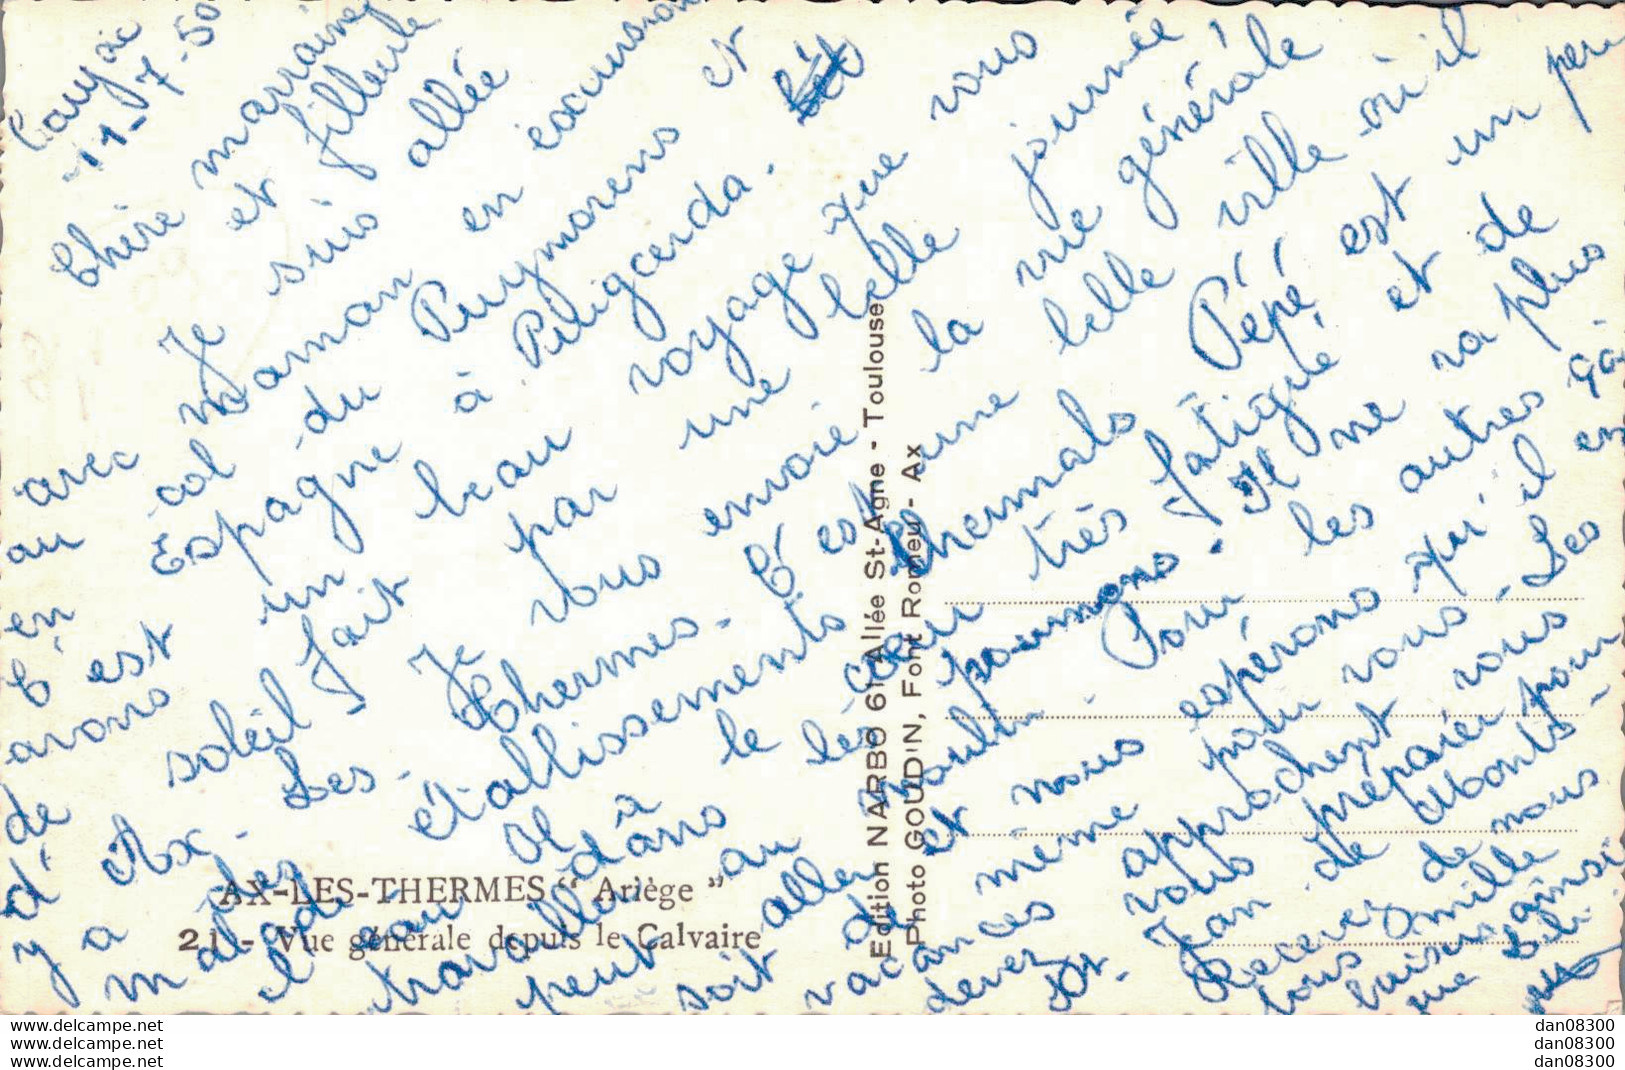 11-7-50
Chère marraine
et filleule
Je suis allée
avec maman en excursion
au col du Puymorens et
en Espagne à Puigcerda.
C'est un beau voyage que vous
avons fait par une belle journée
de soleil. Je vous envoie la vue générale
d'Ax-Les-Thermes. C'est une belle ville où il
y a des établissements thermals. Pépé est un peu
malade. Il a le cœur très fatigué et de
l'eau dans les poumons. Il ne va plus
travailler à moulin. Pour les autres ça
peut aller et nous espérons qu'il en
soit de même pour vous. Les
vacances approchent vous
devez vous préparer pour
St. Jean de Monts.
Recevez de nous
tous mille
baisers ainsi
que Bibi
AX-LES-THERMES " Ariège "
21 - Vue générale depuis le Calvaire
Edition NARBO 61 Allée St-Agne - Toulouse
Photo GOUDIN, Font Romeu - Ax
www.delcampe.net
www.delcampe.net
www.delcampe.net
dan08300
dan08300
dan08300